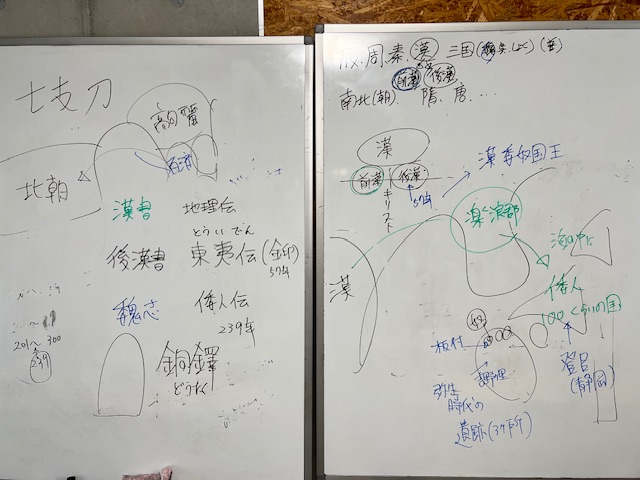 七支刀
高句麗
百済
北朝
漢書 地理伝
とういでん
後漢書 東夷伝(金印)
57年
魏志 倭人伝
239年
201~300
239
銅鐸
どうたく
殷、周、秦、漢 三国(魏 呉 しょく)(晋)
前漢 後漢
南北(朝)、隋、唐、…
漢
前漢 後漢
57年
キリスト
漢委奴国王
楽浪郡
漢
海の中に
倭人
100くらいの国
板付
吉野里
登呂
(静岡)
弥生
時代の
遺跡(3ヶ所)